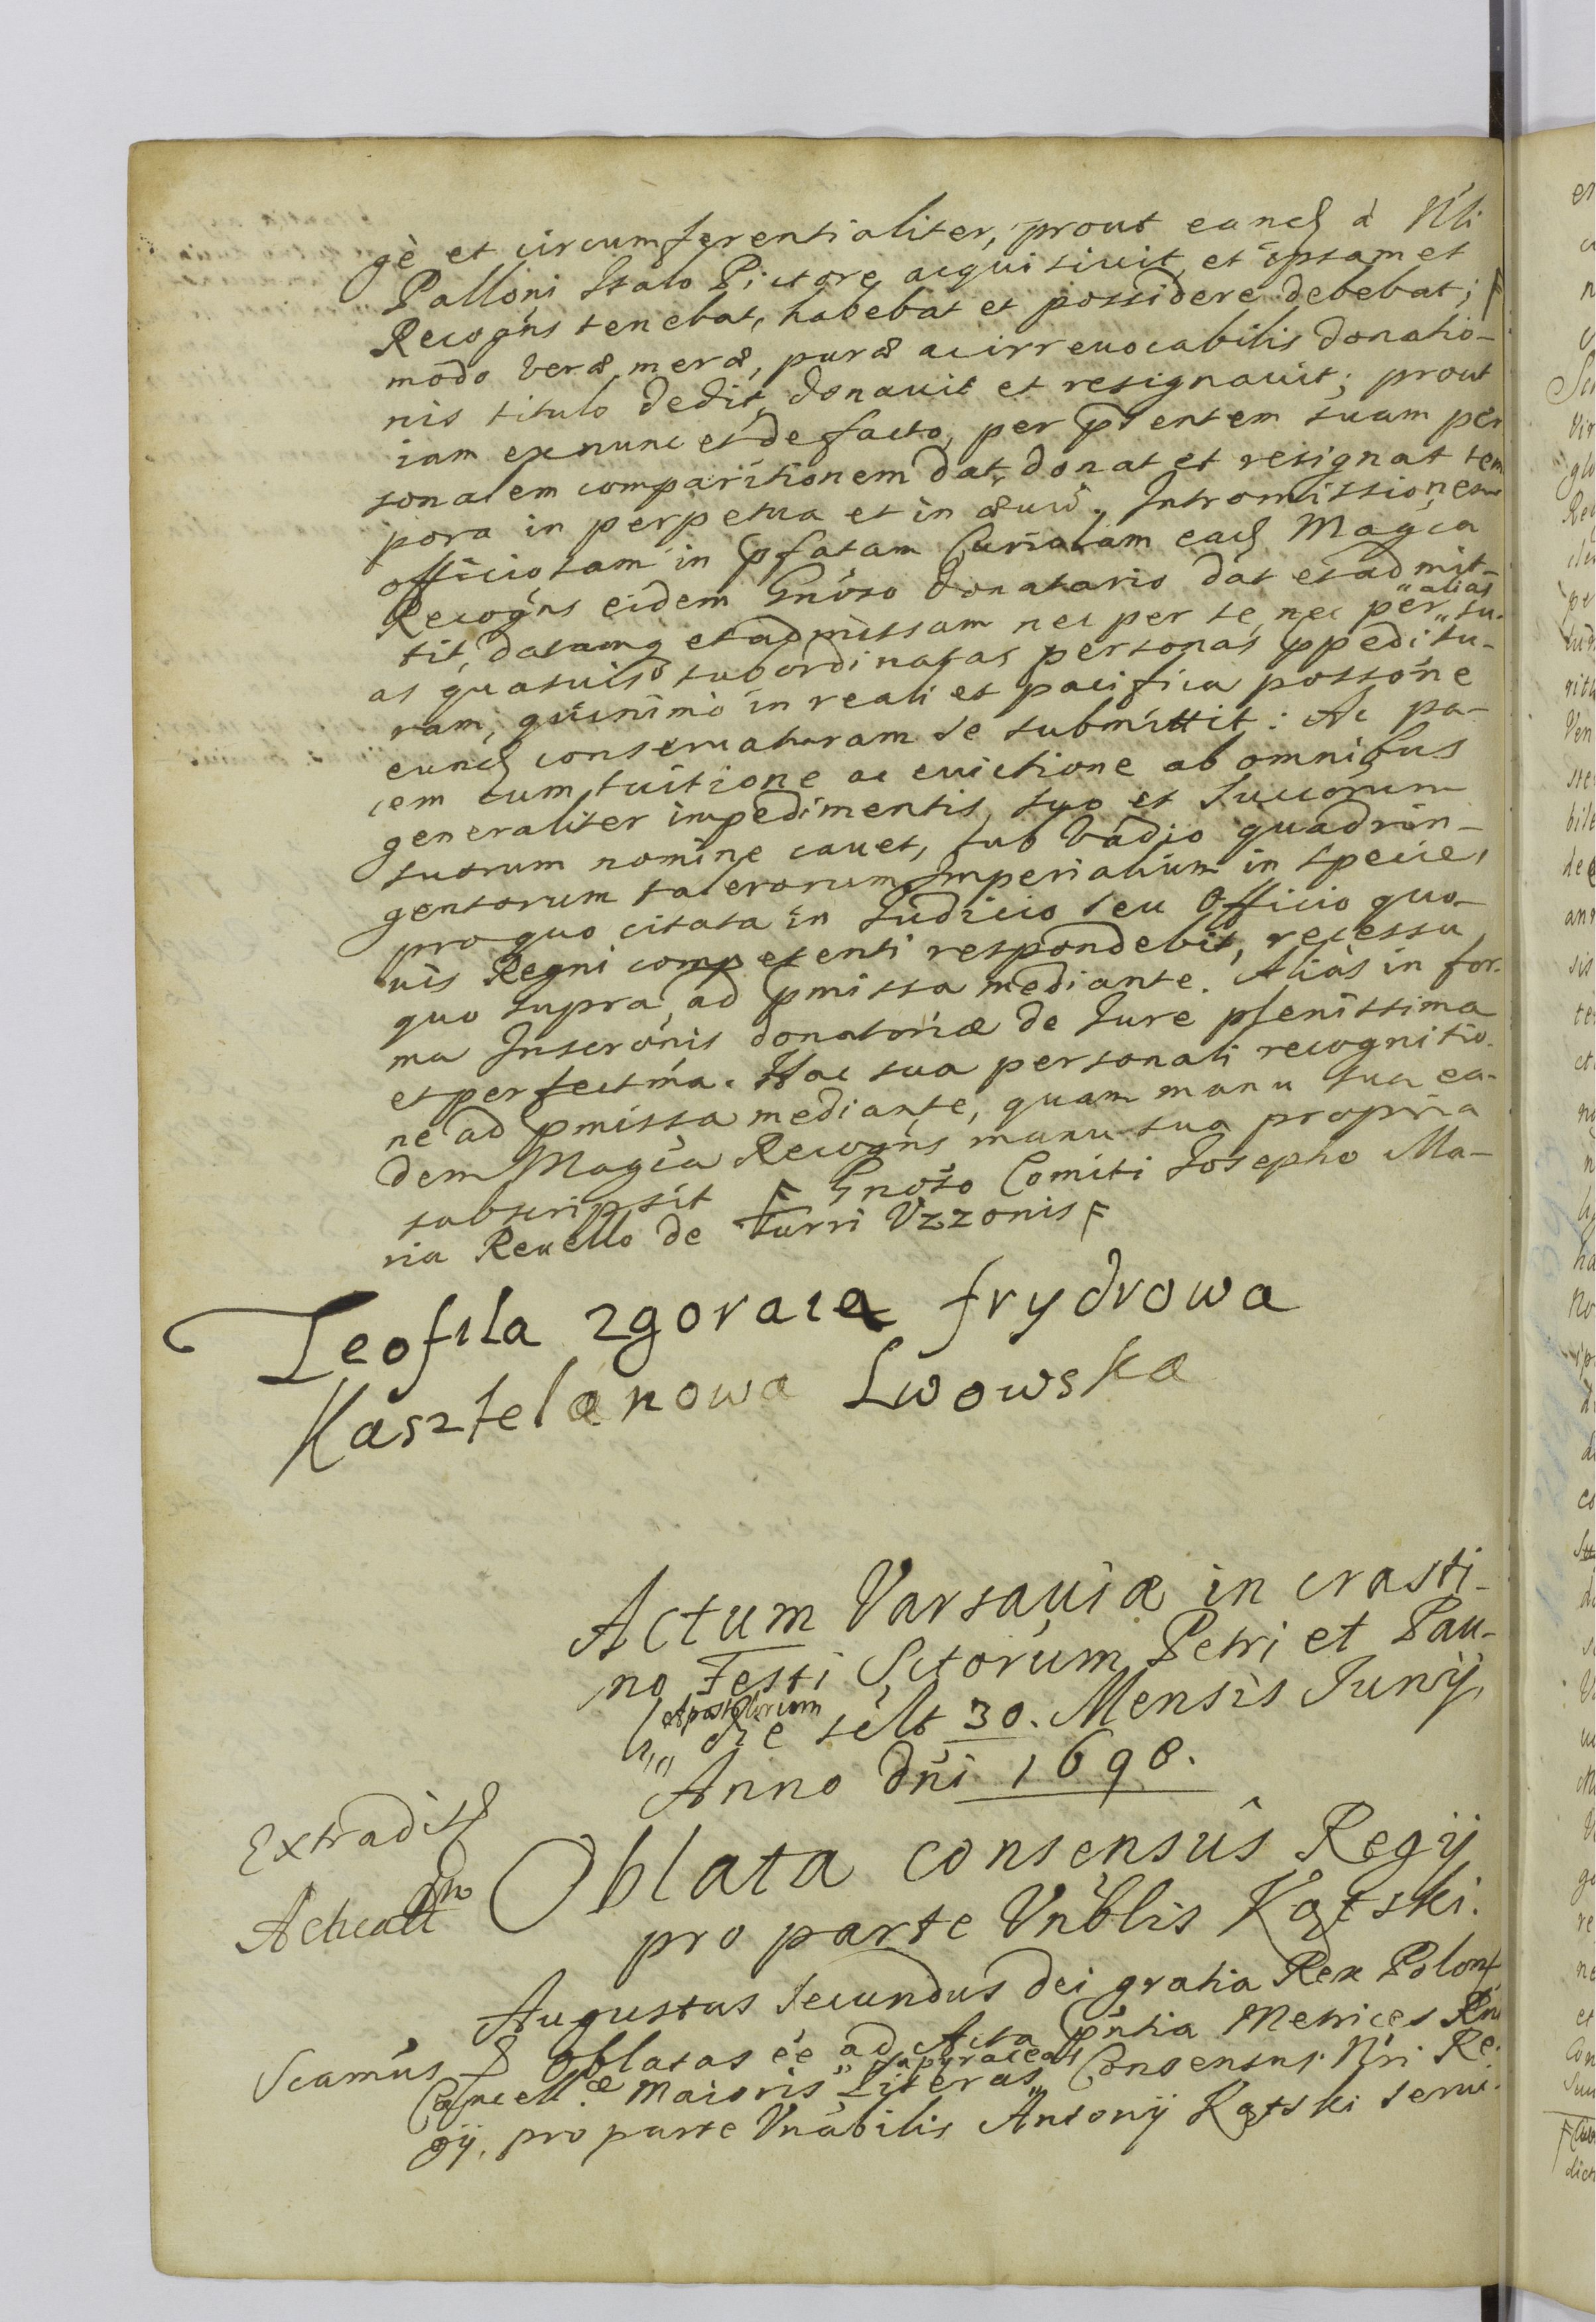 gè et circumferentialiter, prout eand à Nli
Palloni Italo Pictore acquisiuit, et ipsamet
Recogns tenebat, habebat et possidere debebat; F
modo veræ meræ, puræ ac irreuocabilis donatio-
nis titulo dedit, donauit et resignauit; prout
iam ex nunc et de facto, per pntem suam per
sonalem comparitionem dat, donat et resignat tem
pora in perpetua et in æuũ. Intromissionem
officiosam in pfatam Curialam ead Magca
Recogns eidem Gnoso Donatario dat et admit-
tit, datamq et admissam nec per se, nec per " alias " su-
as quasuis subordinatas personas ppeditu-
ram, quinimò in reali et pacifica possone
eund conseruaturam se submittit: Ac pa-
cem cum tuitione ac euictione ab omnibus
generaliter impedimentis, suo et Succorum
suorum nomine cauet, sub Vadio quadrin-
gentorum talerorum Imperialium in specie,
pro quo citata in Iudicio seu Officio quo-
uis Regni competenti respondebit, recessu
quo supra, ad pmissa mediante. Aliàs in for-
ma Inscronis donatoriæ de Iure plenissima
et perfectma. Hac sua personali recognitio-
ne ad pmissa mediante, quam manu sua ea-
dem Magca Recogns manu sua propria
subscripsit F Gnoso Comiti Iosepho Ma-
ria Reuello de Turri Uzzonis F
Teofila zgoraia frydrowa
Kasztelanowa Lwowska
Actum Varsauiæ in crasti-
no Festi Sctorum Petri et Pau-
li " Apostolorum " die sclt 30. Mensis Iunij,
Anno dni 1698.
Extradit
Oblata consensûs Regij
pro parte Vnblis Kątski.
Augustus Secundus dei gratia Rex Polon
Scamus Oblatas ee ad Acta pntia Metrices Rni
Cancellæ Maioris " papyraceas " Literas Consensus Nri Re-
gij, pro parte Vnabilis Antonij Kątski serui-